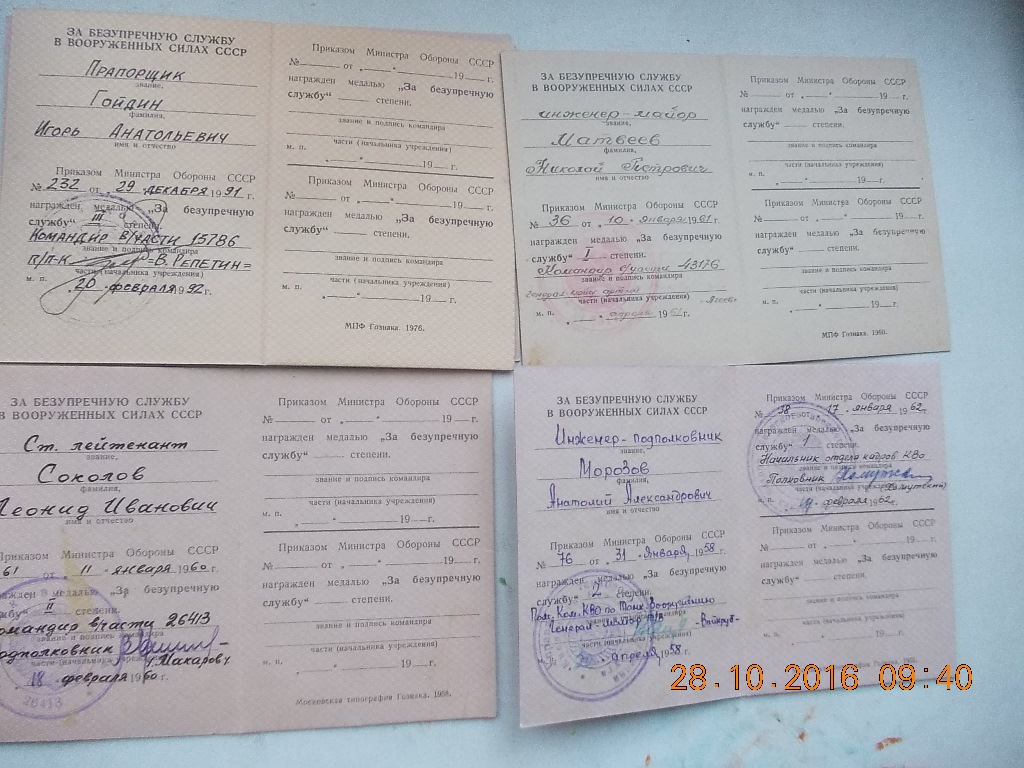 ЗА БЕЗУПРЕЧНУЮ СЛУЖБУ
В ВООРУЖЕННЫХ СИЛАХ СССР
Прапорщик
звание,
Гойдин
фамилия,
Игорь Анатольевич
имя и отчество
Приказом Министра Обороны СССР
№ 232 от „29" декабря 1991 г.
награжден медалью „За безупречную
службу" III степени.
Командир в/части 15786
звание и подпись командира
п/п-к =В. Репетин=
части (начальника учреждения)
м. п. „20" февраля 1992 г.
Приказом Министра Обороны СССР
№ от „ " 19 г.
награжден медалью „За безупречную
службу" степени.
звание и подпись командира
части (начальника учреждения)
м. п. „ " 19 г.
Приказом Министра Обороны СССР
№ от „ " 19 г.
награжден медалью „За безупречную
службу" степени.
звание и подпись командира
части (начальника учреждения)
м. п. „ " 19 г.
МПФ Гознака. 1976.
ЗА БЕЗУПРЕЧНУЮ СЛУЖБУ
В ВООРУЖЕННЫХ СИЛАХ СССР
инженер-майор
звание,
Матвеев
фамилия,
Николой Петрович
имя и отчество
Приказом Министра Обороны СССР
№ 36 от „10" января 1961 г.
награжден медалью „За безупречную
службу" I степени.
Командир в/части 43176
звание и подпись командира
части (начальника учреждения)
м. п. „ " 1961 г.
Приказом Министра Обороны СССР
№ от „ " 19 г.
награжден медалью „За безупречную
службу" степени.
звание и подпись командира
части (начальника учреждения)
м. п. „ " 19 г.
Приказом Министра Обороны СССР
№ от „ " 19 г.
награжден медалью „За безупречную
службу" степени.
звание и подпись командира
части (начальника учреждения)
м. п. „ " 19 г.
МПФ Гознака. 1960.
ЗА БЕЗУПРЕЧНУЮ СЛУЖБУ
В ВООРУЖЕННЫХ СИЛАХ СССР
Ст. лейтенант
звание,
Соколов
фамилия,
Леонид Иванович
имя и отчество
Приказом Министра Обороны СССР
61 от „11" января 1960 г.
награжден медалью „За безупречную
службу" II степени.
командир в/части 26413
звание и подпись командира
подполковник Макаров
части (начальника учреждения)
„18" февраля 1960 г.
26413
Приказом Министра Обороны СССР
№ от „ " 19 г.
награжден медалью „За безупречную
службу" степени.
звание и подпись командира
части (начальника учреждения)
м. п. „ " 19 г.
Приказом Министра Обороны СССР
№ от „ " 19 г.
награжден медалью „За безупречную
службу" степени.
звание и подпись командира
части (начальника учреждения)
м. п. „ " 19 г.
Московская типография Гознака. 1958.
ЗА БЕЗУПРЕЧНУЮ СЛУЖБУ
В ВООРУЖЕННЫХ СИЛАХ СССР
Инженер-подполковник
звание,
Морозов
фамилия,
Анатолий Александрович
имя и отчество
Приказом Министра Обороны СССР
№ 76 от „31" января 1958 г.
награжден медалью „За безупречную
службу" 2 степени.
Пом. Ком. КВО по Танк. Вооружению
звание и подпись командира
Генерал-майор т/в
части (начальника учреждения)
апреля 1958 г.
Приказом Министра Обороны СССР
№ 38 „17" января 1962 г.
награжден медалью „За безупречную
службу" 1 степени.
Начальник отдела кадров КВО
звание и подпись командира
Полковник
части (начальника учреждения)
м. п. февраля 1962 г.
Приказом Министра Обороны СССР
№ от „ " 19 г.
награжден медалью „За безупречную
службу" степени.
звание и подпись командира
части (начальника учреждения)
м. п. „ " 19 г.
28.10.2016 09:40